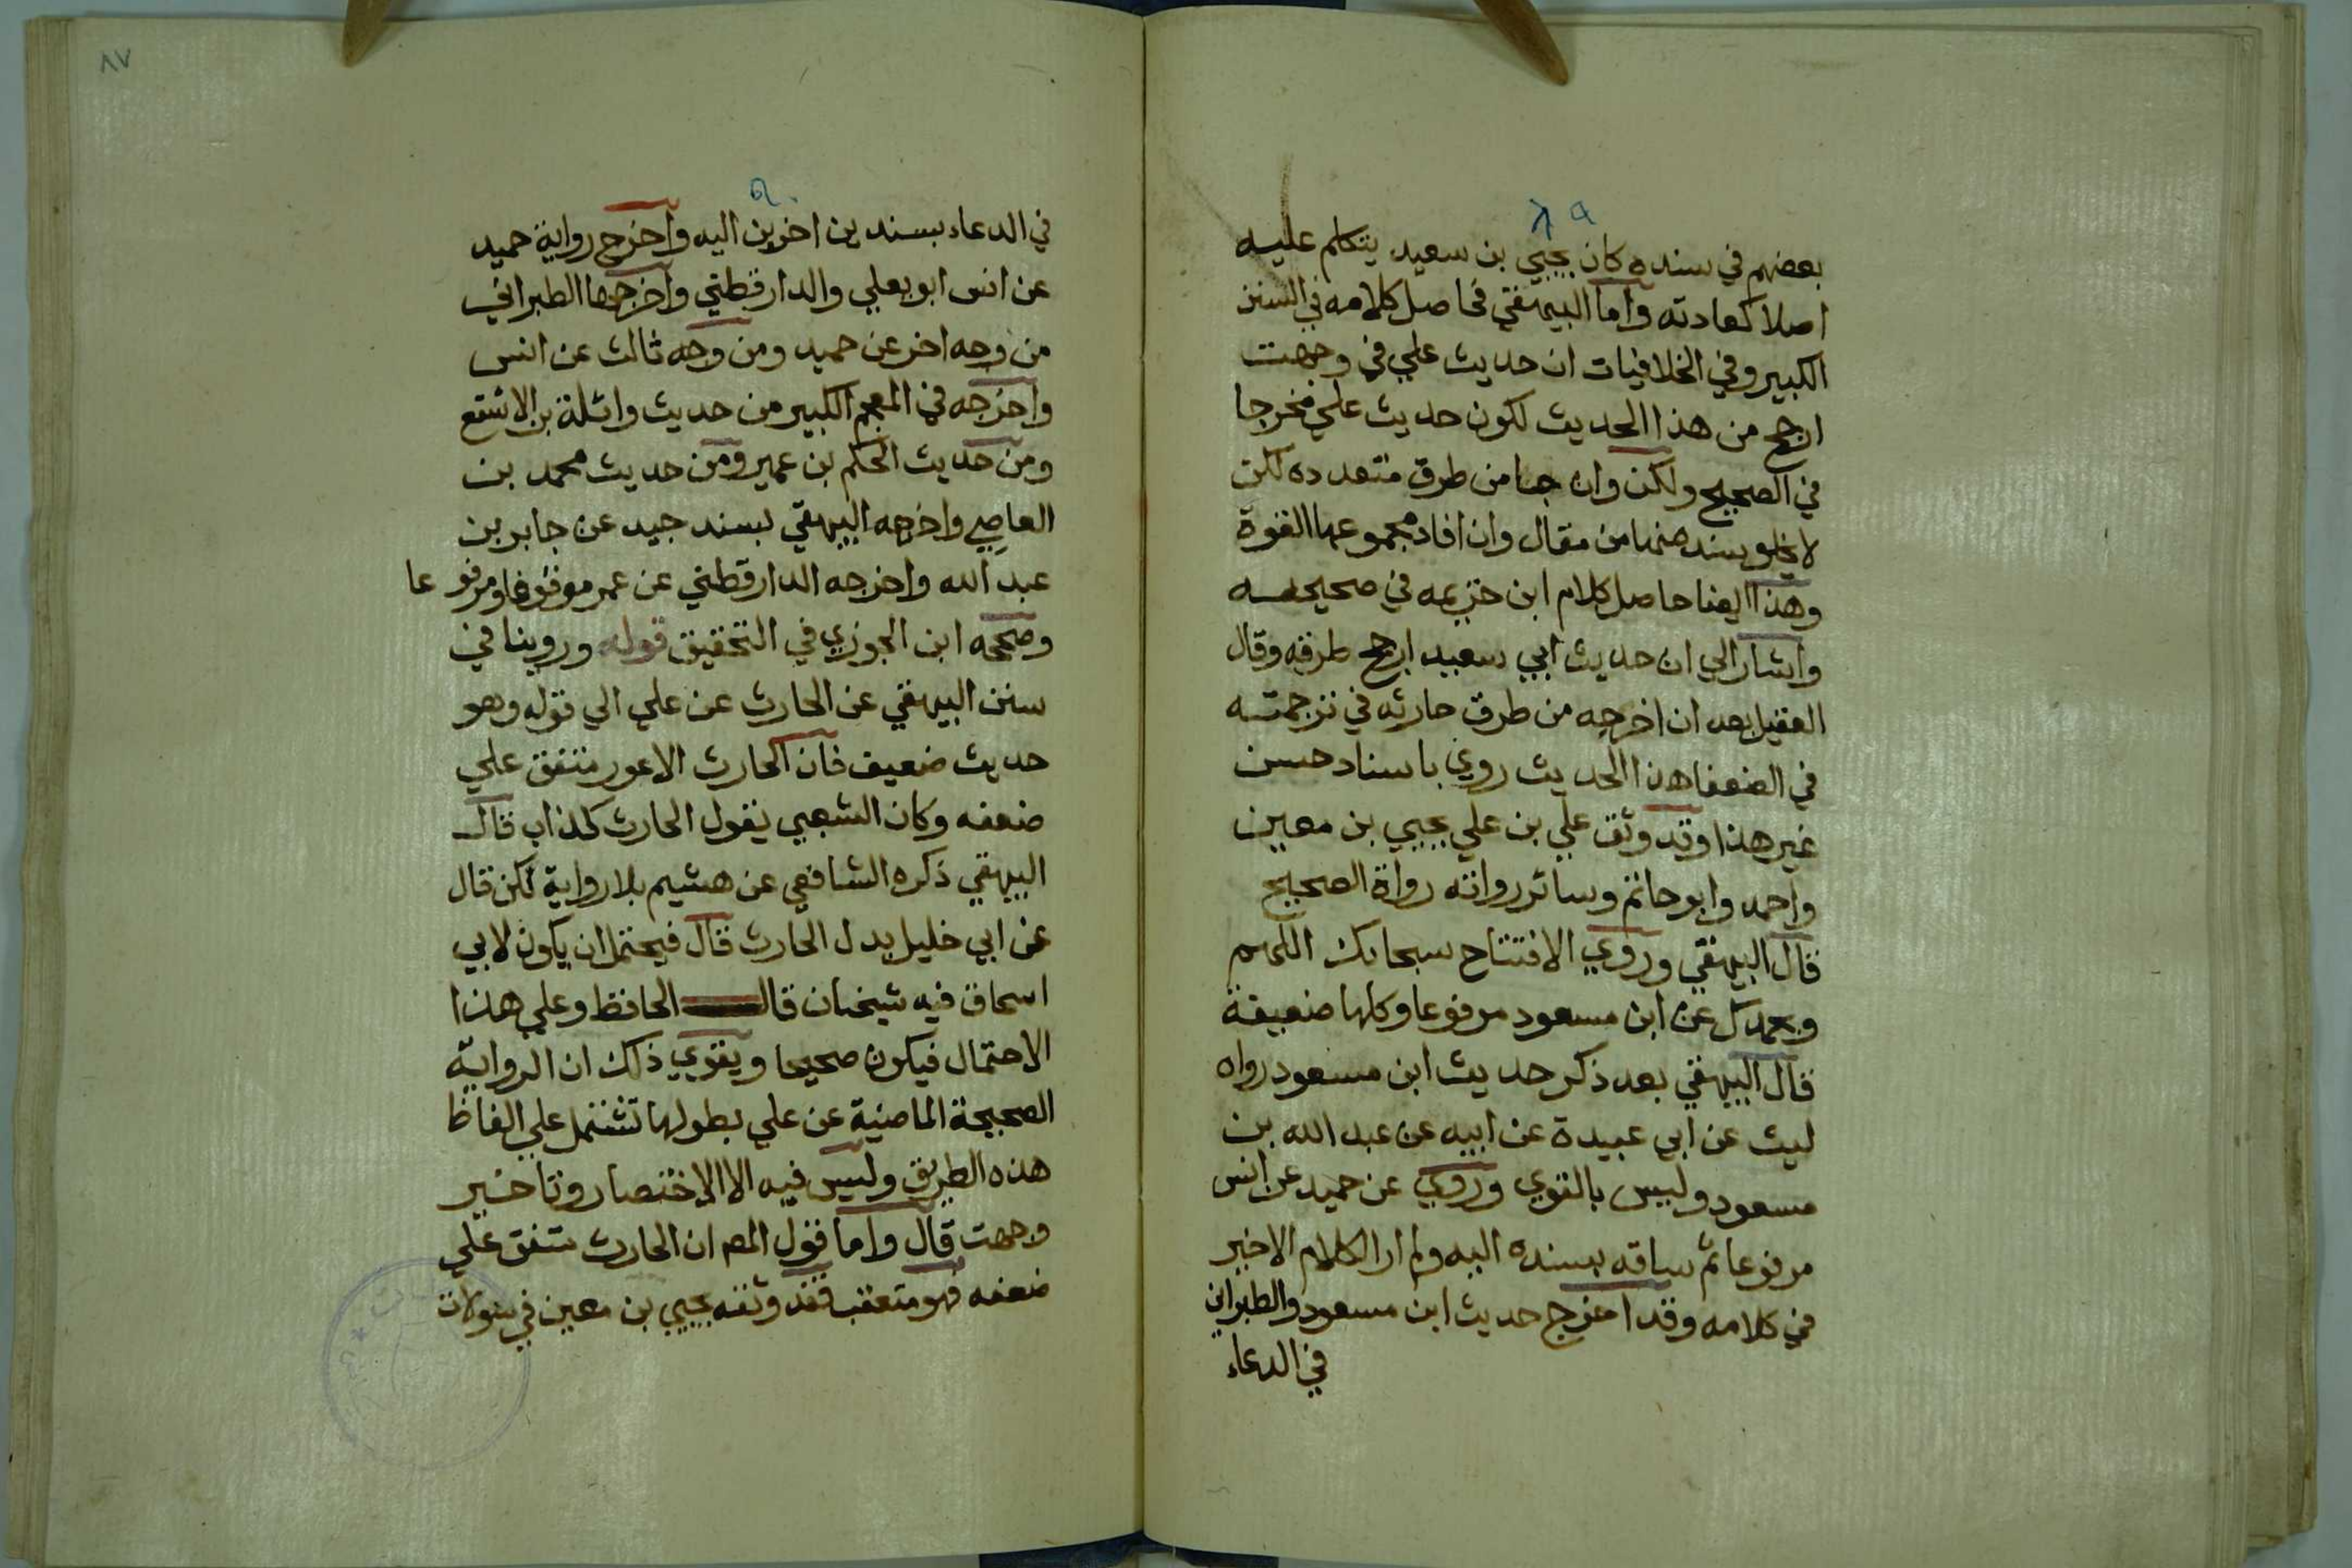 بعضهم في سنده كان يحيي بن سعيد يتكلم عليه
اصلا كعادته واما البيهقي فحاصل كلامه في السنن
الكبير وفي الخلافيات ان حديث علي في وجهت
ارجح من هذا الحديث لكون حديث علي مخرجا
في الصحيح ولكن وان جا من طرق متعدده لكن
لا يخلو سند منها من مقال وان افاد مجموعها القوة
وهذا ايضا حاصل كلام ابن خزيمه في صحيحه
واشار الي ان حديث ابي سعيد ارجح طرقه وقال
العقيلي بعد ان اخرجه من طرق حارثه في ترجمته
في الضعفا هذا الحديث روي باسناد حسن
غير هذا وقد وثق علي بن علي يحيي بن معين
واحمد وابو حاتم وسائر رواته رواة الصحيح
قال البيهقي وروي الافتتاح سبحانك اللهم
وبحمدك عن ابن مسعود مرفوعا وكلها ضعيفة
قال البيهقي بعد ذكر حديث ابن مسعود رواه
ليث عن ابي عبيدة عن ابيه عن عبد الله بن
مسعود وليس بالقوي وروي عن حميد عن انس
مرفوعا ثم ساقه بسنده اليه ولم ار الكلام الاخير
في كلامه وقد اخرج حديث ابن مسعود والطبراني
في الدعاء
٨٧
في الدعاء بسندين اخرين اليه واخرج رواية حميد
عن انس ابو يعلي والدارقطني واخرجها الطبراني
من وجه اخر عن حميد ومن وجه ثالث عن انس
واخرجه في المعجم الكبير من حديث واثلة بن الاشقع
ومن حديث الحكم بن عمير ومن حديث محمد بن
العاصي واخرجه البيهقي بسند جيد عن جابر بن
عبد الله واخرجه الدارقطني عن عمر موقوفا ومرفوعا
وصححه ابن الجوزي في التحقيق قوله وروينا في
سنن البيهقي عن الحارث عن علي الي قوله وهو
حديث ضعيف فان الحارث الاعور متفق علي
ضعفه وكان الشعبي يقول الحارث كذاب قال
البيهقي ذكره الشافعي عن هشيم بلا رواية لكن قال
عن ابي خليل بدل الحارث قال فيحتمل ان يكون لابي
اسحاق فيه شيخان قال الحافظ وعلي هذا
الاحتمال فيكون صحيحا ويقوي ذلك ان الرواية
الصحيحة الماضية عن علي بطولها تشتمل علي الفاظ
هذه الطريق وليس فيه الا الاختصار وتاخير
وجهت قال واما قول المص ان الحارث متفق علي
ضعفه فهو متعقب فقد وثقه يحيي بن معين في سولات